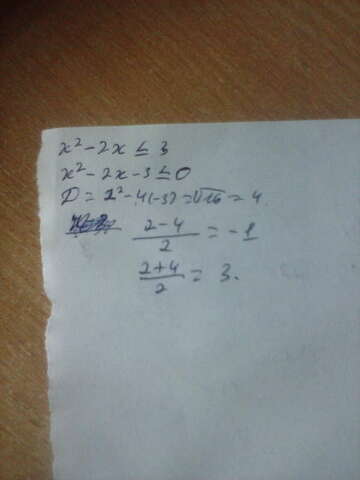 x² - 2x ≤ 3
x² - 2x - 3 ≤ 0
D = 2² - 4(-3) = √16 = 4.
(2-4)/2 = -1
(2+4)/2 = 3.